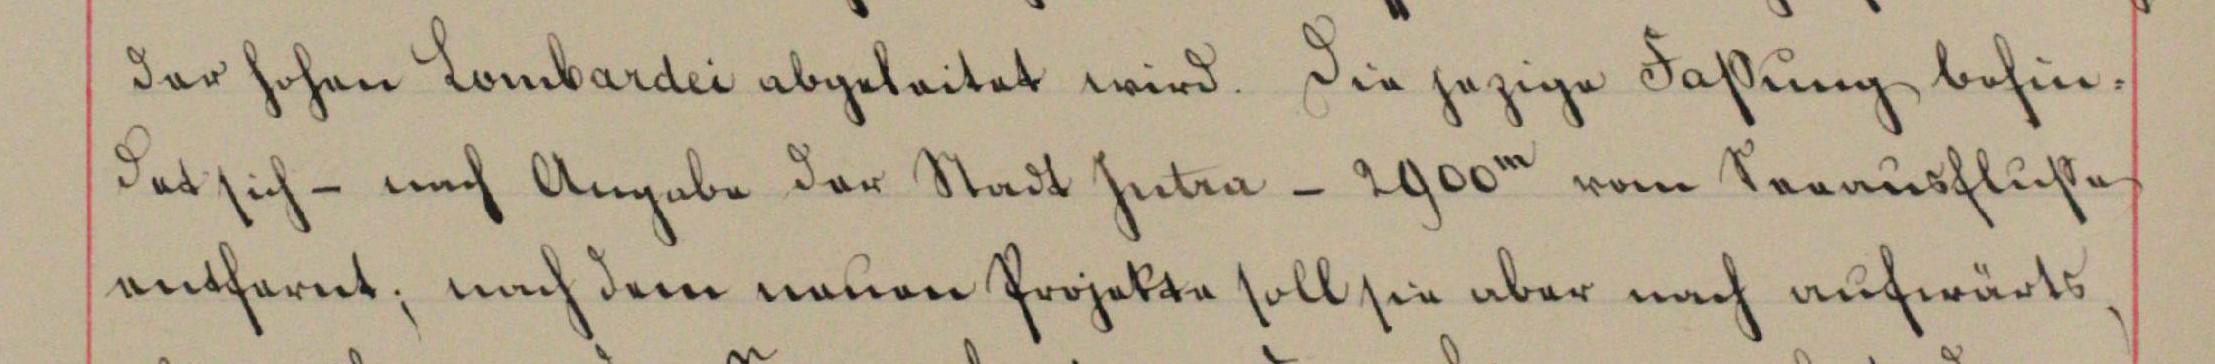 der hohen Lombardei abgeleitet wird. Die jezige Faßung befin-
det sich – nach Angabe der Stadt Intra – 2900ᵐ vom Seeausfluße
entfernt; nach dem neuen Projekte soll sie aber nach aufwärts